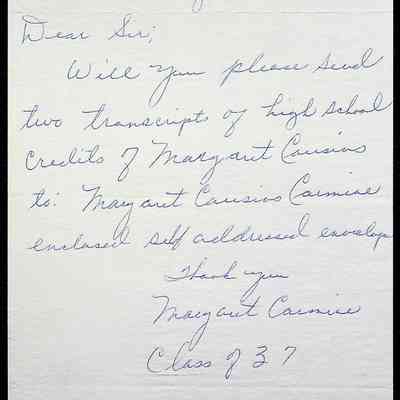 Dear Sir;
Will you please send
two transcripts of high school
credits of Margaret Cousins
to: Margaret Cousins Carmine
enclosed self addressed envelope
Thank you
Margaret Carmine
Class of 37